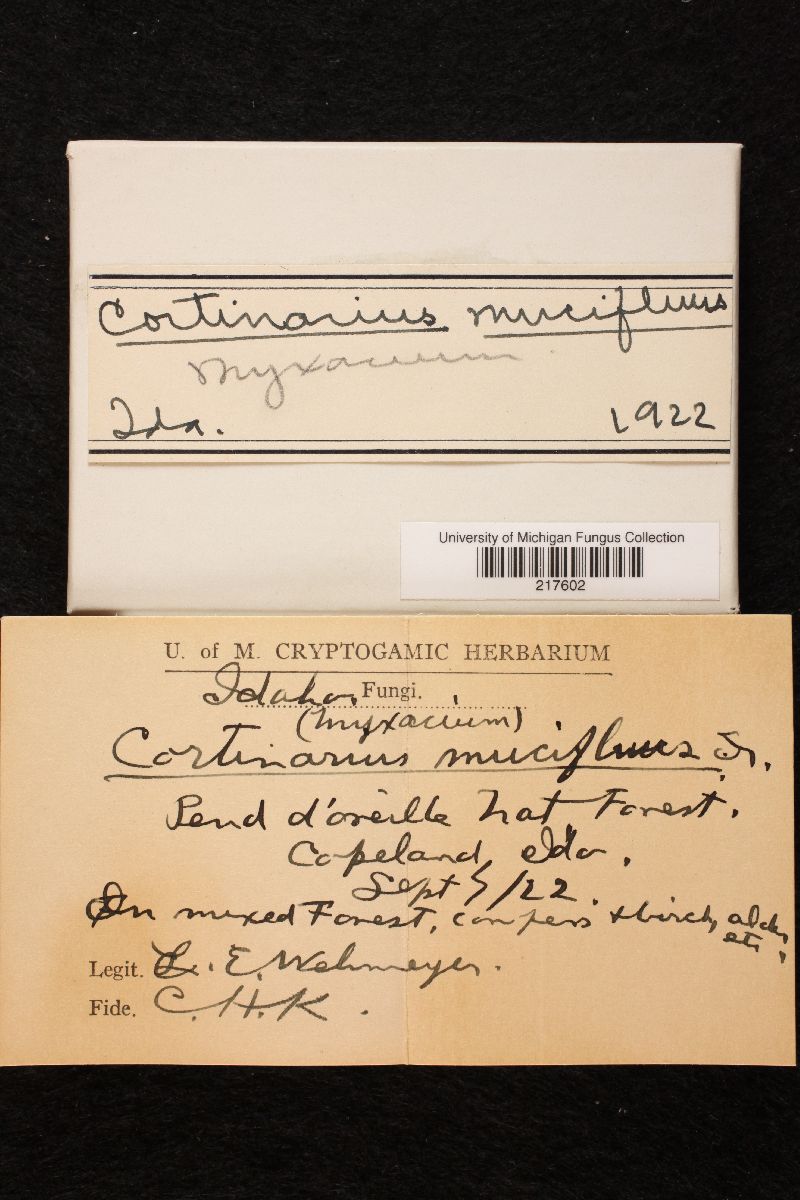 Cortinarius mucifluus
Myxacium
Ida. 1922
University of Michigan Fungus Collection
217602
U. of M. CRYPTOGAMIC HERBARIUM
Idaho Fungi.
(Myxacium)
Cortinarius mucifluus Fr.
Pend d'oreille Nat. Forest.
Copeland, Ida.
Sept /22.
In mixed Forest, conifers & birch, alder,
etc.
Legit. L. E. Wehmeyer.
Fide. C. H. K.